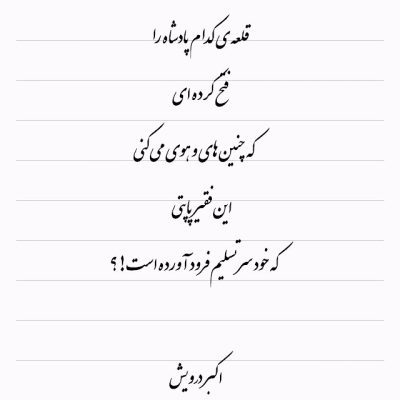 قلعه ی کدام پادشاه را
فتح کرده ای
که چنین های و هوی می کنی
این فقیر پاپتی
که خود سر تسلیم فرود آورده است!؟
اکبر درویش